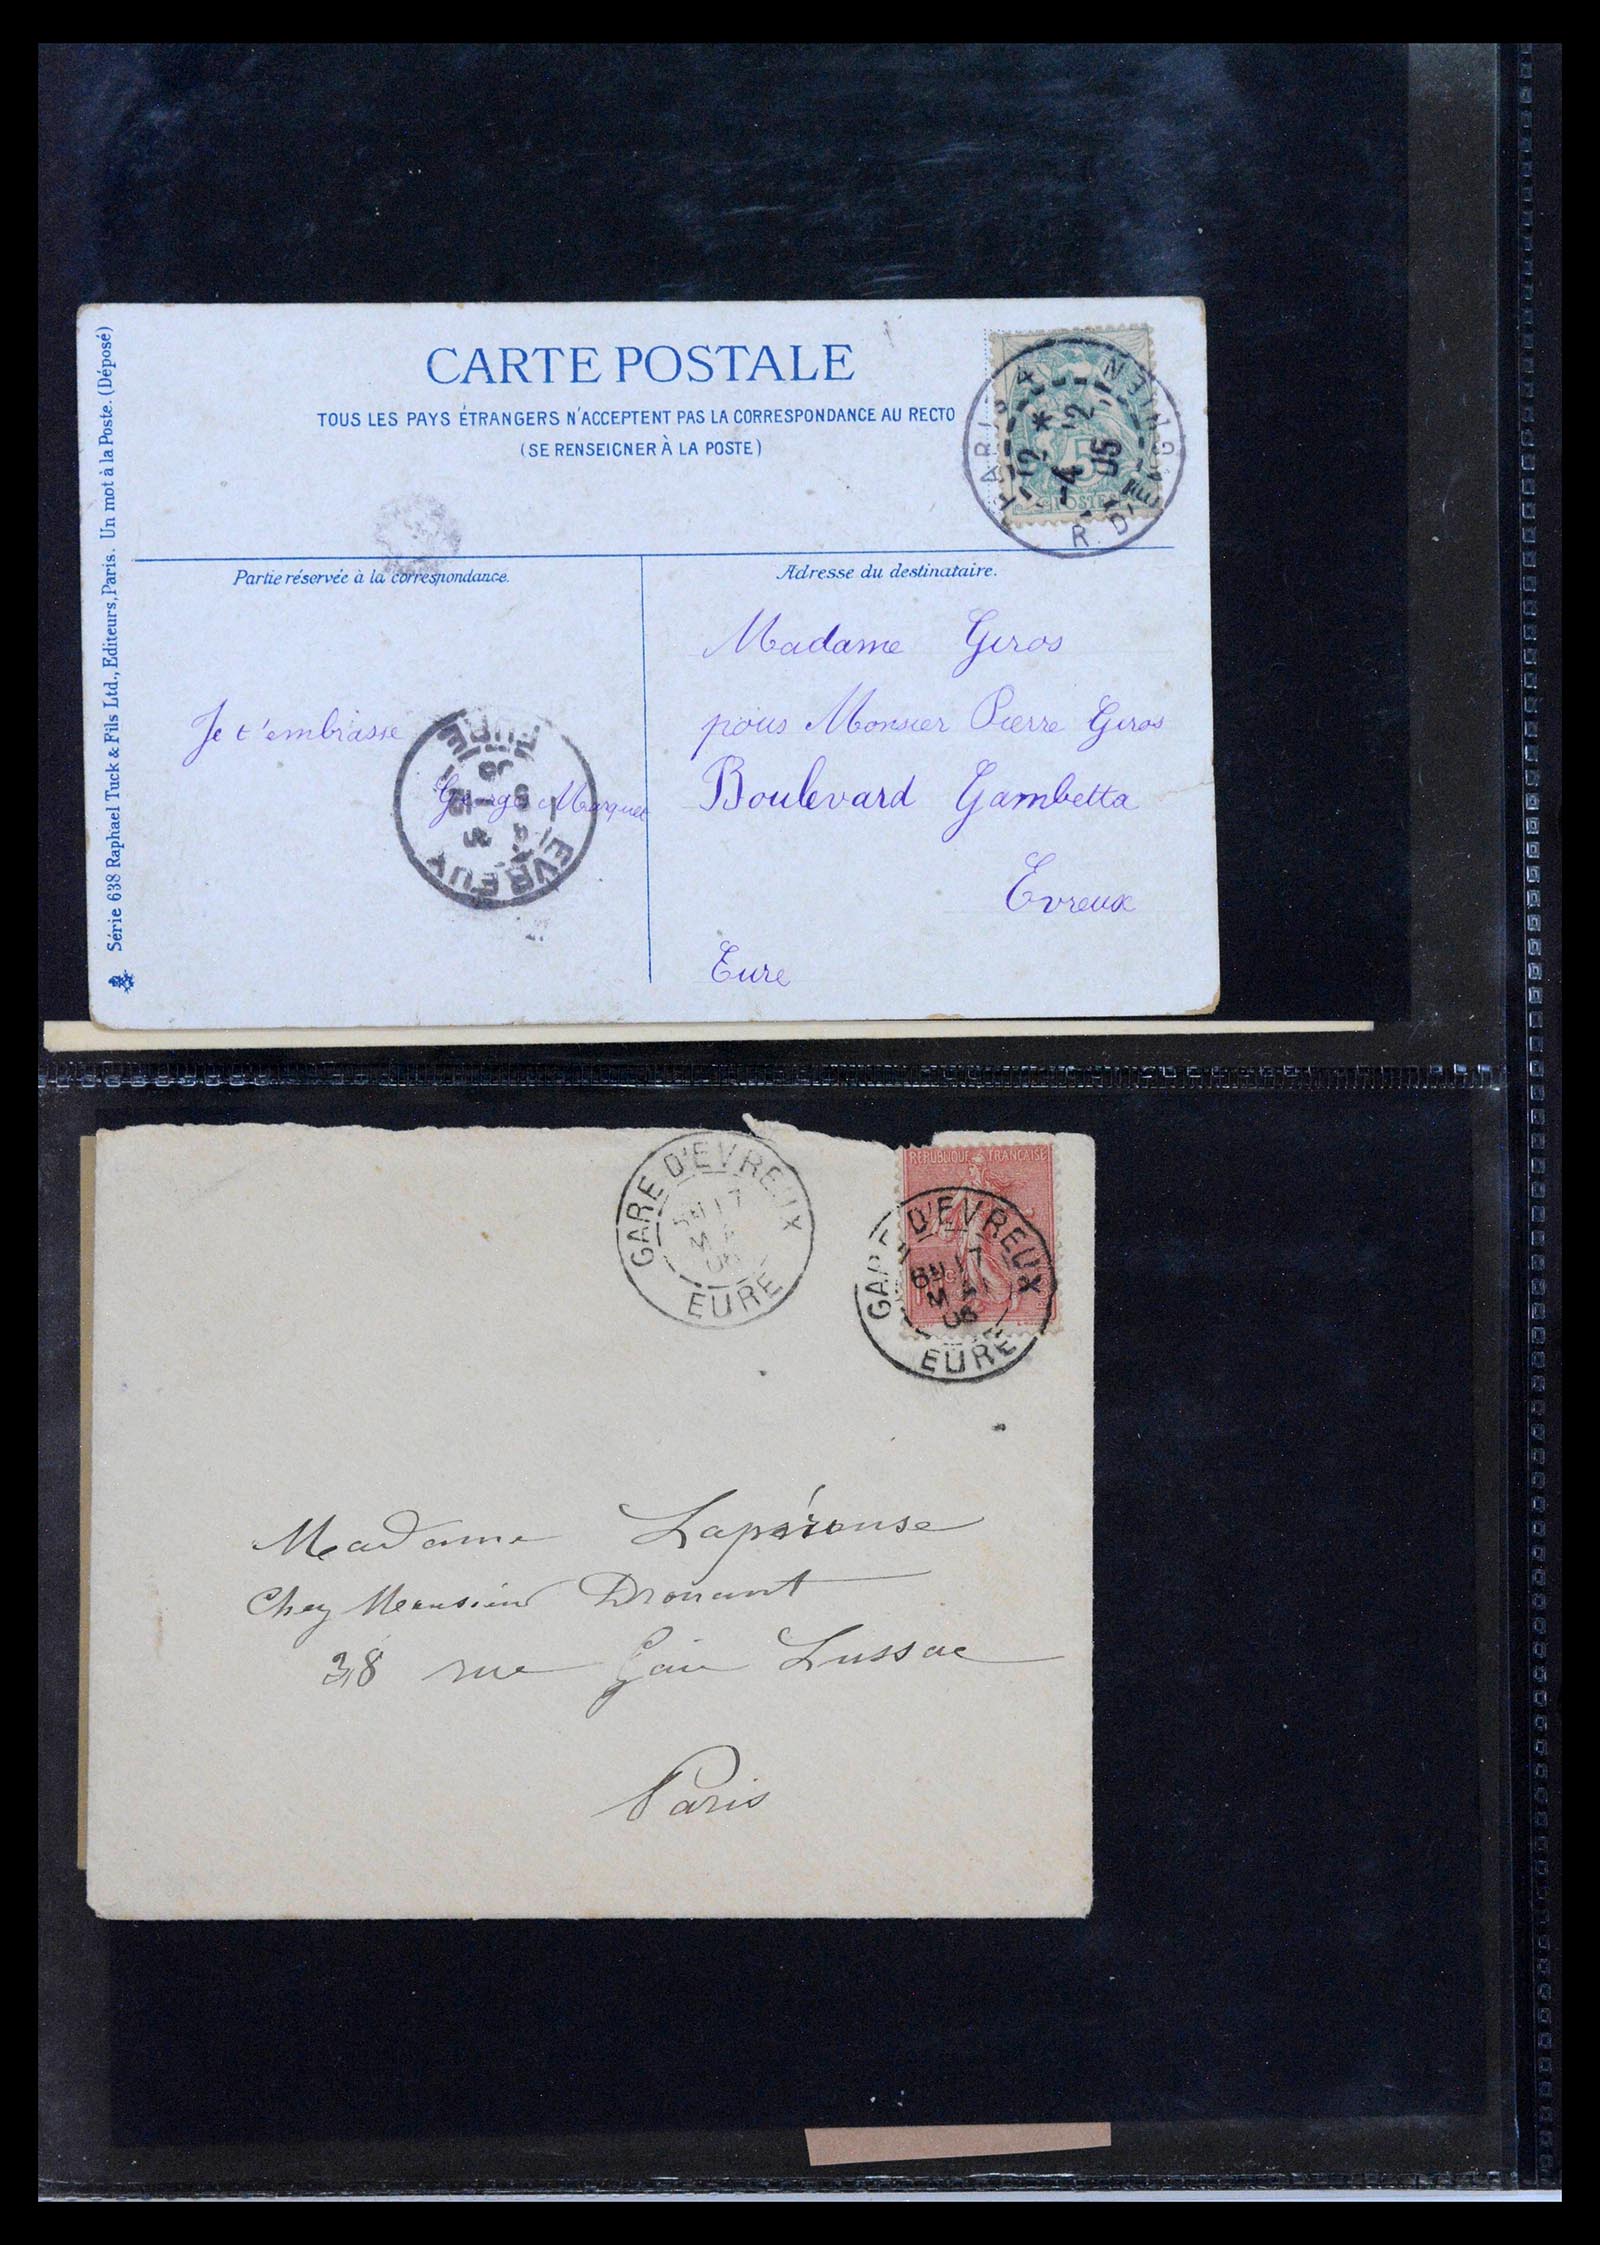 CARTE POSTALE
TOUS LES PAYS ÉTRANGERS N'ACCEPTENT PAS LA CORRESPONDANCE AU RECTO
(SE RENSEIGNER À LA POSTE)
Série 638 Raphael Tuck & Fils Ltd., Editeurs, Paris. Un mot à la Poste. (Déposé)
PARIS 4
R. D'ENGHIEN
12 *
4 12
05
5
POSTES
Partie réservée à la correspondance.
Je t'embrasse
George Marquet
EVREUX
EURE
Adresse du destinataire.
Madame Giros
pour Monsier Pierre Giros
Boulevard Gambetta
Evreux
Eure
GARE D'EVREUX
17
06
EURE
REPUBLIQUE FRANÇAISE
GARE D'EVREUX
17
MAI
06
EURE
Madame Lapérouse
Chez Monsieur Drouant
38 rue Gay Lussac
Paris